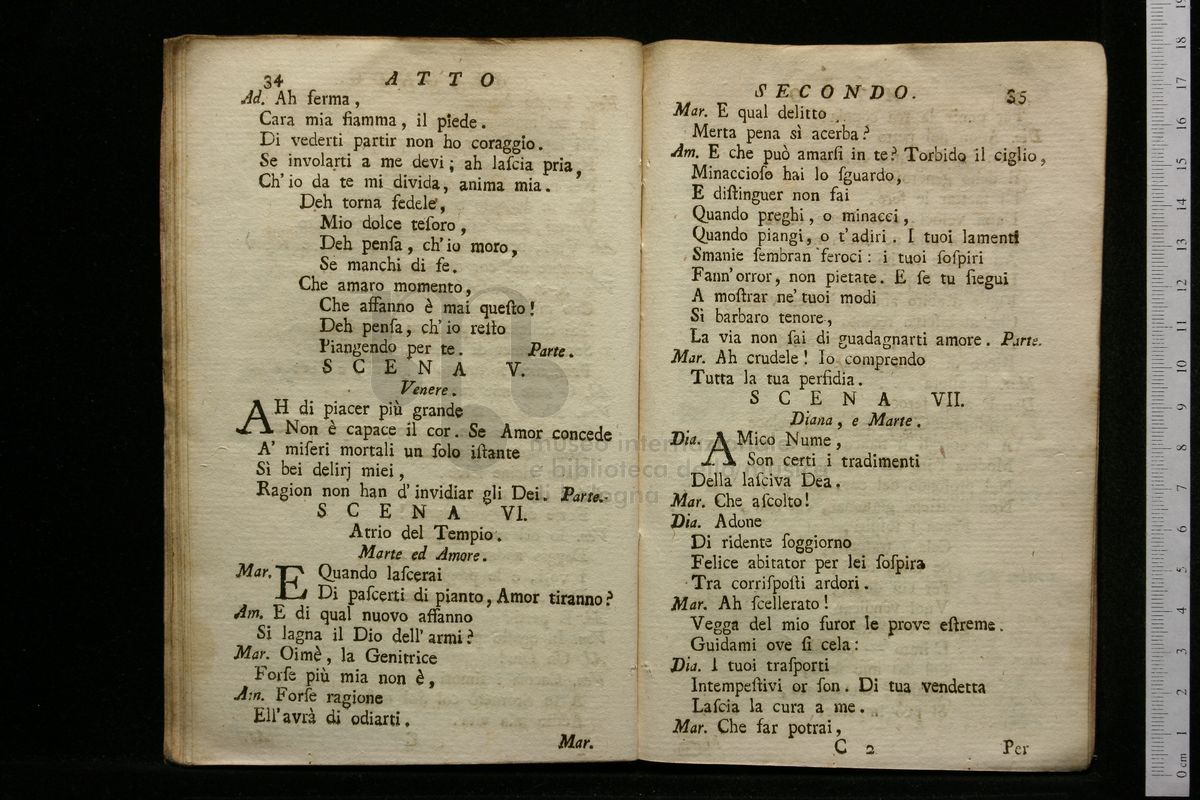 34 ATTO
Ad. Ah ferma,
Cara mia fiamma, il piede.
Di vederti partir non ho coraggio.
Se involarti a me devi; ah laſcia pria,
Ch'io da te mi divida, anima mia.
Deh torna fedele,
Mio dolce teſoro,
Deh penſa, ch'io moro,
Se manchi di fe.
Che amaro momento,
Che affanno è mai queſto!
Deh penſa, ch'io reſto
Piangendo per te. Parte.
SCENA V.
Venere.
AH di piacer più grande
Non è capace il cor. Se Amor concede
A' miſeri mortali un ſolo iſtante
Sì bei delirj miei,
Ragion non han d'invidiar gli Dei. Parte.
SCENA VI.
Atrio del Tempio.
Marte ed Amore.
Mar. E Quando laſcerai
Di paſcerti di pianto, Amor tiranno?
Am. E di qual nuovo affanno
Si lagna il Dio dell'armi?
Mar. Oimè, la Genitrice
Forſe più mia non è,
Am. Forſe ragione
Ell'avrà di odiarti.
Mar.
SECONDO. 35
Mar. E qual delitto
Merta pena sì acerba?
Am. E che può amarſi in te? Torbido il ciglio,
Minaccioſo hai lo ſguardo,
E diſtinguer non fai
Quando preghi, o minacci,
Quando piangi, o t'adiri. I tuoi lamenti
Smanie ſembran feroci: i tuoi ſoſpiri
Fann'orror, non pietate. E ſe tu ſiegui
A moſtrar ne' tuoi modi
Sì barbaro tenore,
La via non ſai di guadagnarti amore. Parte.
Mar. Ah crudele! Io comprendo
Tutta la tua perfidia.
SCENA VII.
Diana, e Marte.
Dia. AMico Nume,
Son certi i tradimenti
Della laſciva Dea.
Mar. Che aſcolto!
Dia. Adone
Di ridente ſoggiorno
Felice abitator per lei ſoſpira
Tra corriſpoſti ardori.
Mar. Ah ſcellerato!
Vegga del mio furor le prove eſtreme.
Guidami ove ſi cela:
Dia. I tuoi traſporti
Intempeſtivi or ſon. Di tua vendetta
Laſcia la cura a me.
Mar. Che far potrai,
C 2 Per
museo internazionale
e biblioteca della musica
di bologna
0 cm 1 2 3 4 5 6 7 8 9 10 11 12 13 14 15 16 17 18 19